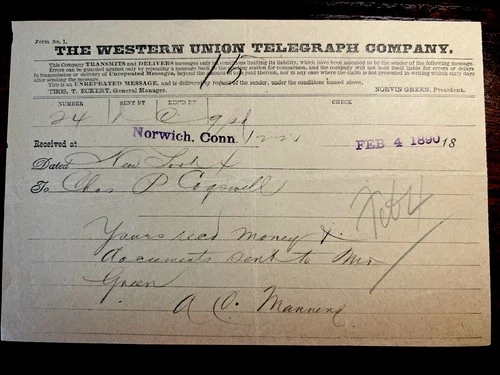 Form No. 1.
THE WESTERN UNION TELEGRAPH COMPANY.
This Company TRANSMITS and DELIVERS messages only on conditions limiting its liability, which have been assented to by the sender of the following message.
Errors can be guarded against only by repeating a message back to the sending station for comparison, and the company will not hold itself liable for errors or delays
in transmission or delivery of Unrepeated Messages, beyond the amount of tolls paid thereon, nor in any case where the claim is not presented in writing within sixty days
after sending the message.
This is an UNREPEATED MESSAGE, and is delivered by request of the sender, under the conditions named above.
THOS. T. ECKERT, General Manager. NORVIN GREEN, President.
NUMBER SENT BY REC'D BY CHECK
24
Received at Norwich, Conn. FEB 4 1890 18
Dated New York 4
To Chas P Cogswell
Feb 4
Yours recd money &
documents sent to Mrs
Green
A C. Manning